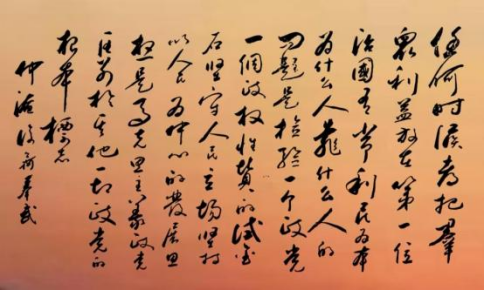 任何时候都把羣
衆利益放在第一位
治國有常利民为本
为什么人靠什么人的
问题是检验一个政党
一個政权性質的试金
石坚守人民立场坚持
以人民为中心的發展思
想是马克思主义政党
区别于其他一切政党的
根本标志